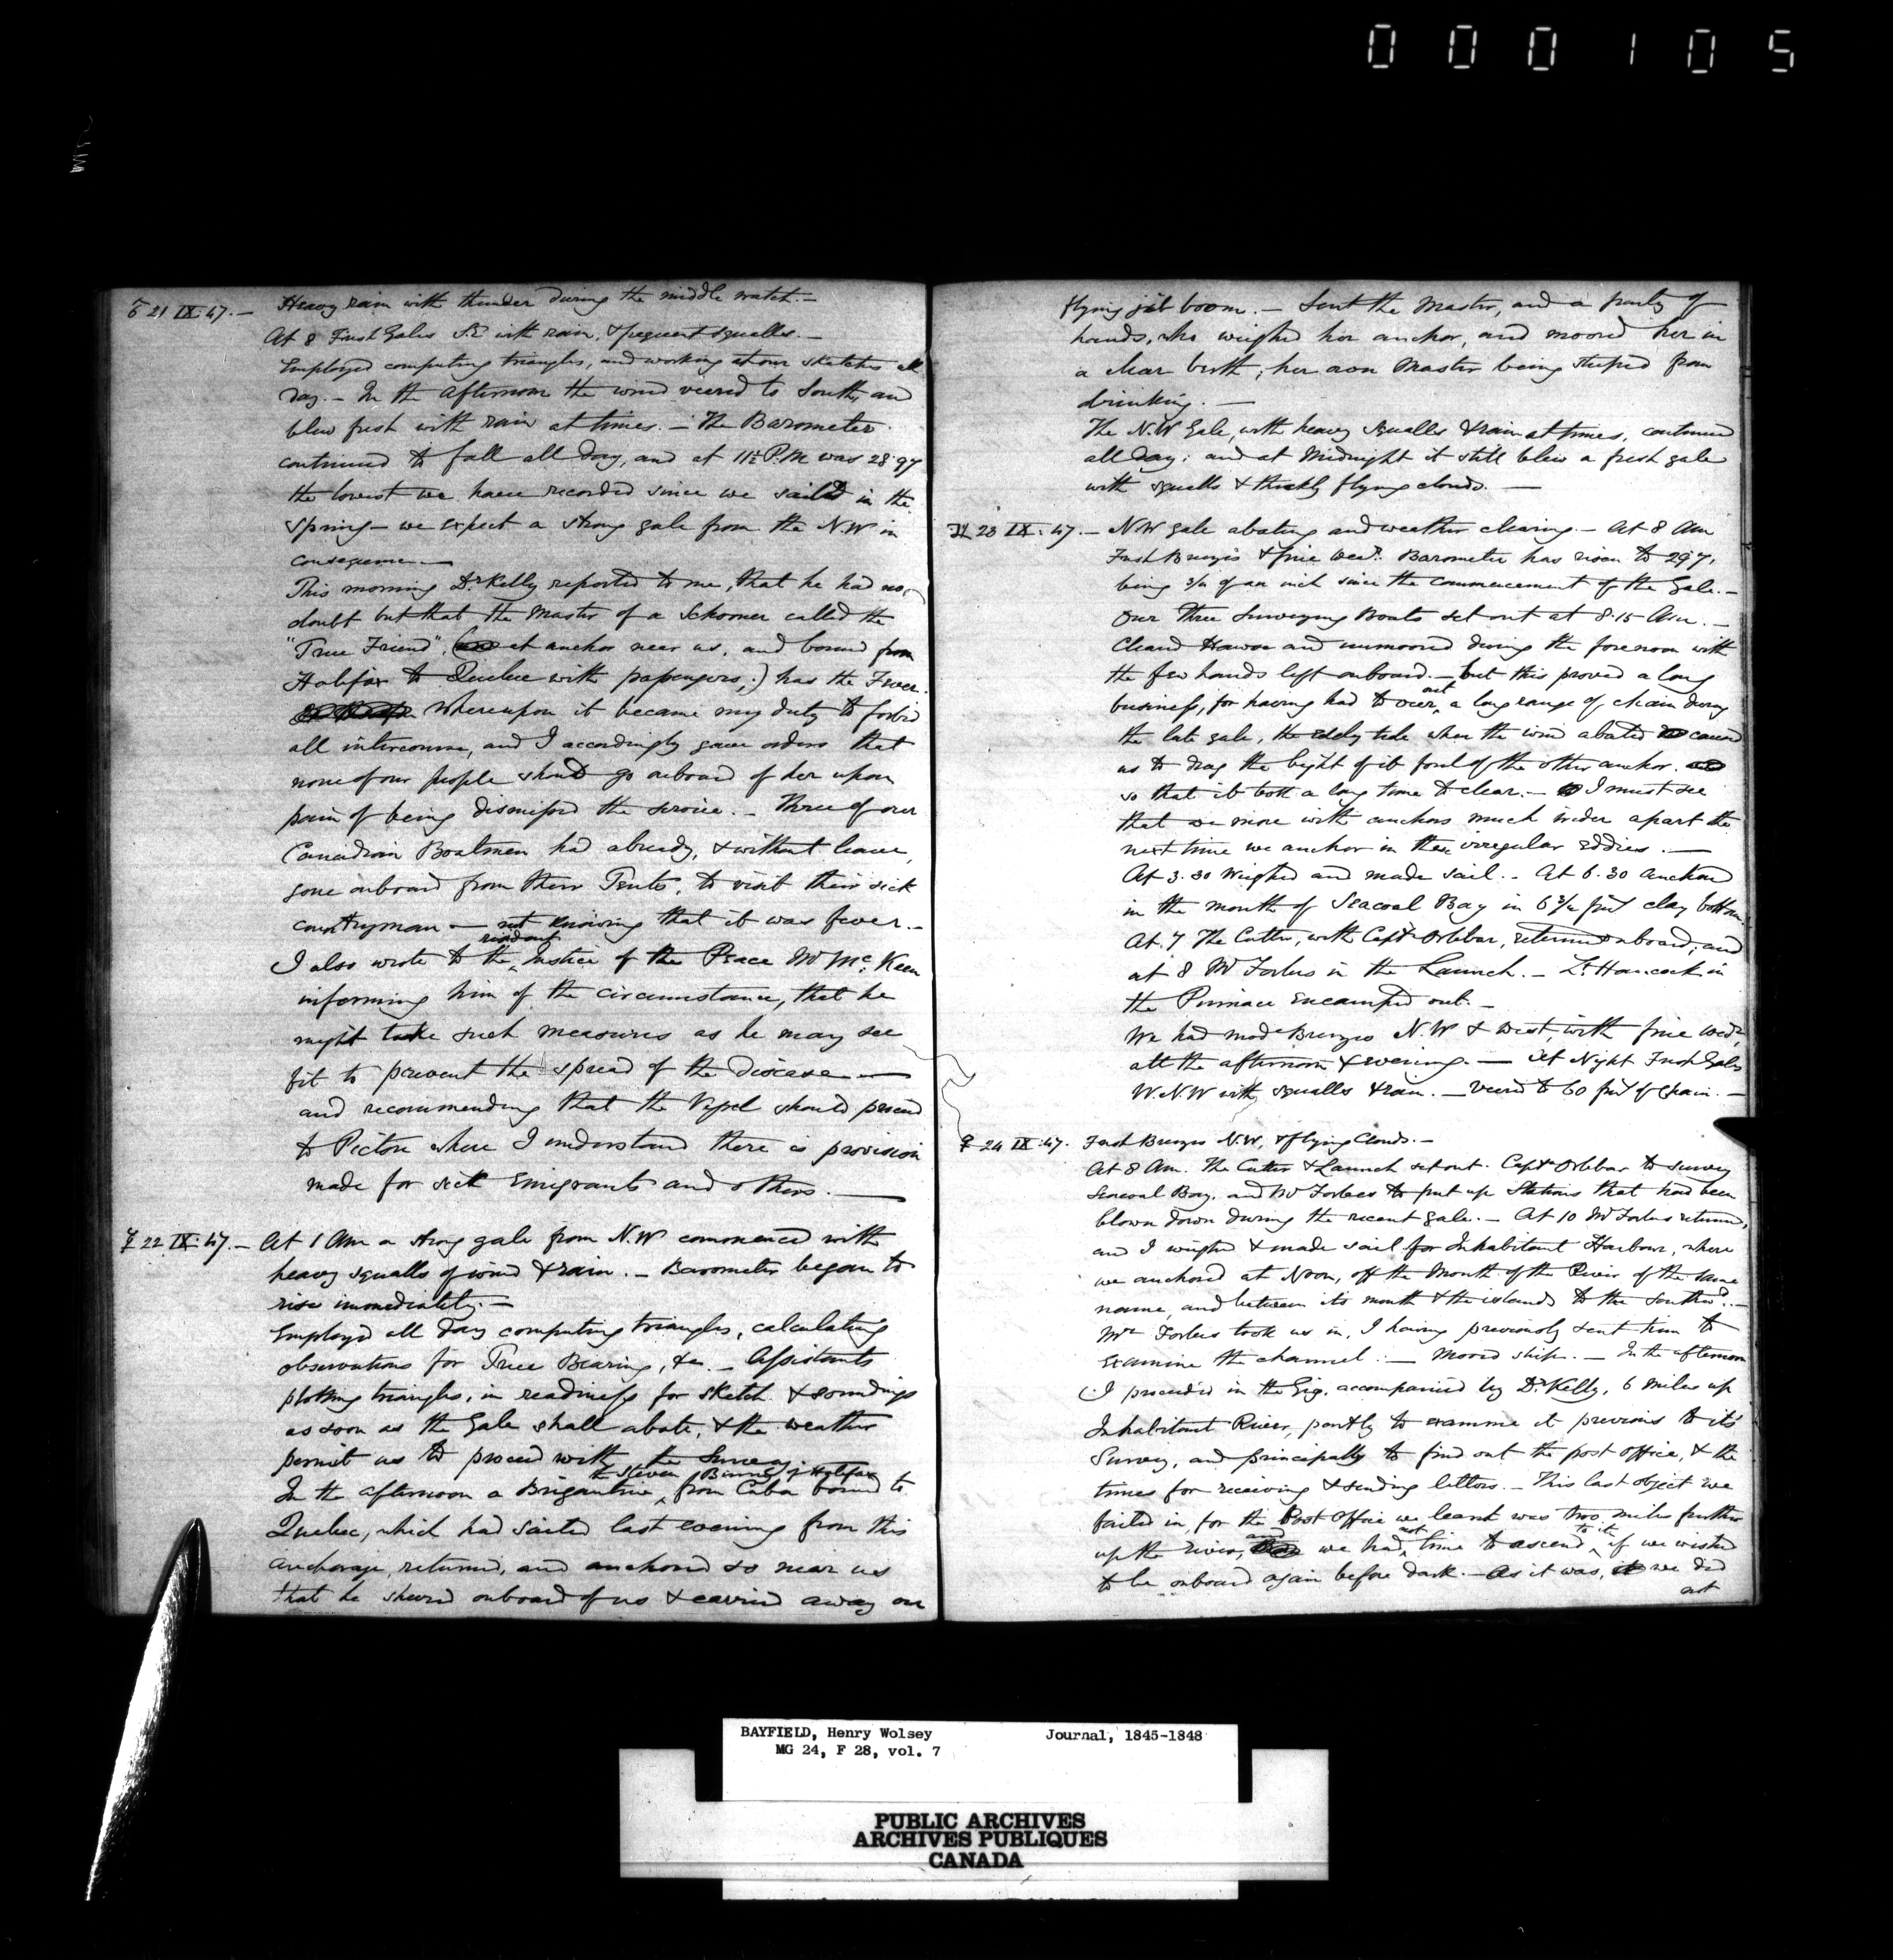 000105
♂ 21 IX 47. — Heavy rain with thunder during the middle watch. —
At 8 Fresh Gales S.E with rain, & frequent squalls. —
Employed computing triangles, and working at our sketches all
day. — In the afternoon the wind veered to South, and
blew fresh with rain at times. — The Barometer
continued to fall all day, and at 11½ P.M was 28.97
the lowest we have recorded since we sailed in the
spring — we expect a strong gale from the N.W in
consequence —
This morning Dr Kelly reported to me, that he had no
doubt but that the Master of a Schooner called the
"True Friend", ( at anchor near us, and bound from
Halifax to Quebec with passengers;) has the Fever.
Whereupon it became my duty to forbid
all intercourse, and I accordingly gave orders that
none of our people should go onboard of her upon
pain of being dismissed the service. — Three of our
Canadian Boatmen had already, & without leave,
gone onboard from their Tents, to visit their sick
countryman — not knowing that it was fever. —
I also wrote to the resident Justice of the Peace Mr McKeen
informing him of the circumstance, that he
might take such measures as he may see
fit to prevent the spread of the disease —
and recommending that the Vessel should proceed
to Pictou where I understand there is provision
made for sick Emigrants and others. —
☿ 22 IX: 47. — At 1 Am a strong gale from N.W commenced with
heavy squalls of wind & rain. — Barometer began to
rise immediately. —
Employed all day computing triangles, calculating
observations for True Bearing, &c. — Assistants
plotting triangles, in readiness for sketch & soundings
as soon as the Gale shall abate, & the weather
permit us to proceed with the Survey.
In the afternoon a Brigantine, the Steven Binney of Halifax from Cuba bound to
Quebec, which had sailed last evening from this
anchorage, returned, and anchored so near us
that he sheered onboard of us & carried away our
flying jib boom. — Sent the Master, and a party of
hands, who weighed her anchor, and moored her in
a clear berth; her own Master being stupid from
drinking. —
The N.W Gale, with heavy squalls & rain at times, continued
all day; and at Midnight it still blew a fresh gale
with squalls & thickly flying clouds. —
♃ 23 IX: 47. — N.W gale abating and weather clearing. — At 8 Am
Fresh Breezes & fine Wear. Barometer has risen to 29.7,
being ¾ of an inch since the commencement of the Gale. —
Our Three Surveying Boats set out at 8.15 Am. —
Cleared Hawse and unmoored during the forenoon with
the few hands left onboard. — but this proved a long
business, for having had to veer out a long range of chain during
the late gale, the eddy tide when the wind abated caused
us to drag the bight of it foul of the other anchor.
so that it took a long time to clear. — I must see
that we moor with anchors much wider apart the
next time we anchor in these irregular Eddies. —
At 3.30 Weighed and made sail. — At 6.30 anchored
in the mouth of Seacoal Bay in 6¾ fms clay bottom.
At 7 The Cutter, with Captn Orlebar, returned onboard; and
at 8 Mr Forbes in the Launch. — Lt Hancock in
the Pinnace Encamped out. —
We had modr Breezes N.W & West, with fine wear,
all the afternoon & evening. — At Night Fresh Gales
W.N.W with squalls & rain. — Veered to 60 fms of Chain. —
♀ 24 IX: 47. Fresh Breezes N.W, & flying Clouds. —
At 8 Am. The Cutter & Launch set out. Captn Orlebar to survey
Seacoal Bay, and Mr Forbes to put up Stations that had been
blown down during the recent gale. — At 10 Mr Forbes returned,
and I weighed & made sail for Inhabitant Harbour, where
we anchored at Noon, off the Mouth of the River of the same
name, and between its mouth & the islands to the Southwd. —
Mr Forbes took us in, I having previously sent him to
Examine the channel. — Moored ship. — In the afternoon
I proceeded in the Gig, accompanied by Dr Kelly, 6 miles up
Inhabitant River, partly to examine it previous to its
Survey, and principally to find out the post office, & the
times for receiving & sending letters. — This last object we
failed in, for the Post Office we learnt was two miles further
up the river, and we had not time to ascend to it if we wished
to be onboard again before dark. — As it was, we did
not
BAYFIELD, Henry Wolsey Journal, 1845-1848
MG 24, F 28, vol. 7
PUBLIC ARCHIVES
ARCHIVES PUBLIQUES
CANADA